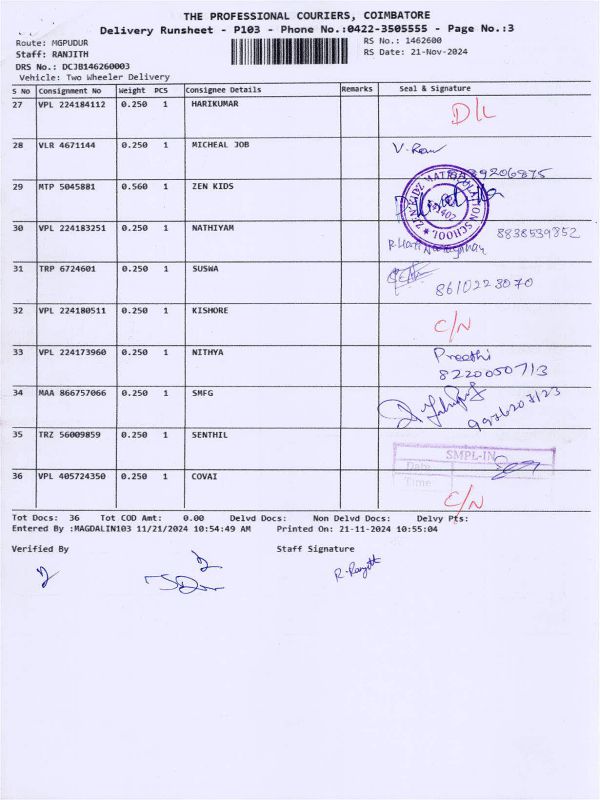 THE PROFESSIONAL COURIERS, COIMBATORE
Delivery Runsheet - P103 - Phone No.:0422-3505555 - Page No.:3
Route: MGPUDUR RS No.: 1462600
Staff: RANJITH RS Date: 21-Nov-2024
DRS No.: DCJB146260003
Vehicle: Two Wheeler Delivery
S No Consignment No Weight PCS Consignee Details Remarks Seal & Signature
27 VPL 224184112 0.250 1 HARIKUMAR D/L
28 VLR 4671144 0.250 1 MICHEAL JOB
29 MTP 5045881 0.560 1 ZEN KIDS
30 VPL 224183251 0.250 1 NATHIYAM 8838539852
31 TRP 6724601 0.250 1 SUSWA 8610223070
32 VPL 224180511 0.250 1 KISHORE C/N
33 VPL 224173960 0.250 1 NITHYA Preethi
8220050713
34 MAA 866757066 0.250 1 SMFG 9976207123
35 TRZ 56009859 0.250 1 SENTHIL SMPL-IN
Date
Time
36 VPL 405724350 0.250 1 COVAI C/N
Tot Docs: 36 Tot COD Amt: 0.00 Delvd Docs: Non Delvd Docs: Delvy Pts:
Entered By :MAGDALIN103 11/21/2024 10:54:49 AM Printed On: 21-11-2024 10:55:04
Verified By Staff Signature
R. Ranjith